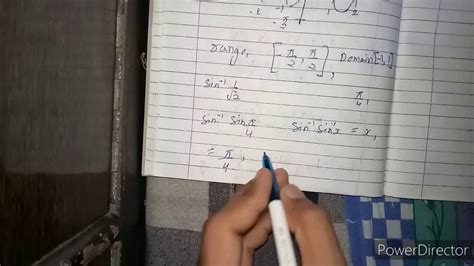 range, [-π/2, π/2], Domain[-1,1]
sin⁻¹ 1/√2 π/4,
sin⁻¹ sin π/4 sin⁻¹ sin⁻¹x = x,
= π/4,
PowerDirector